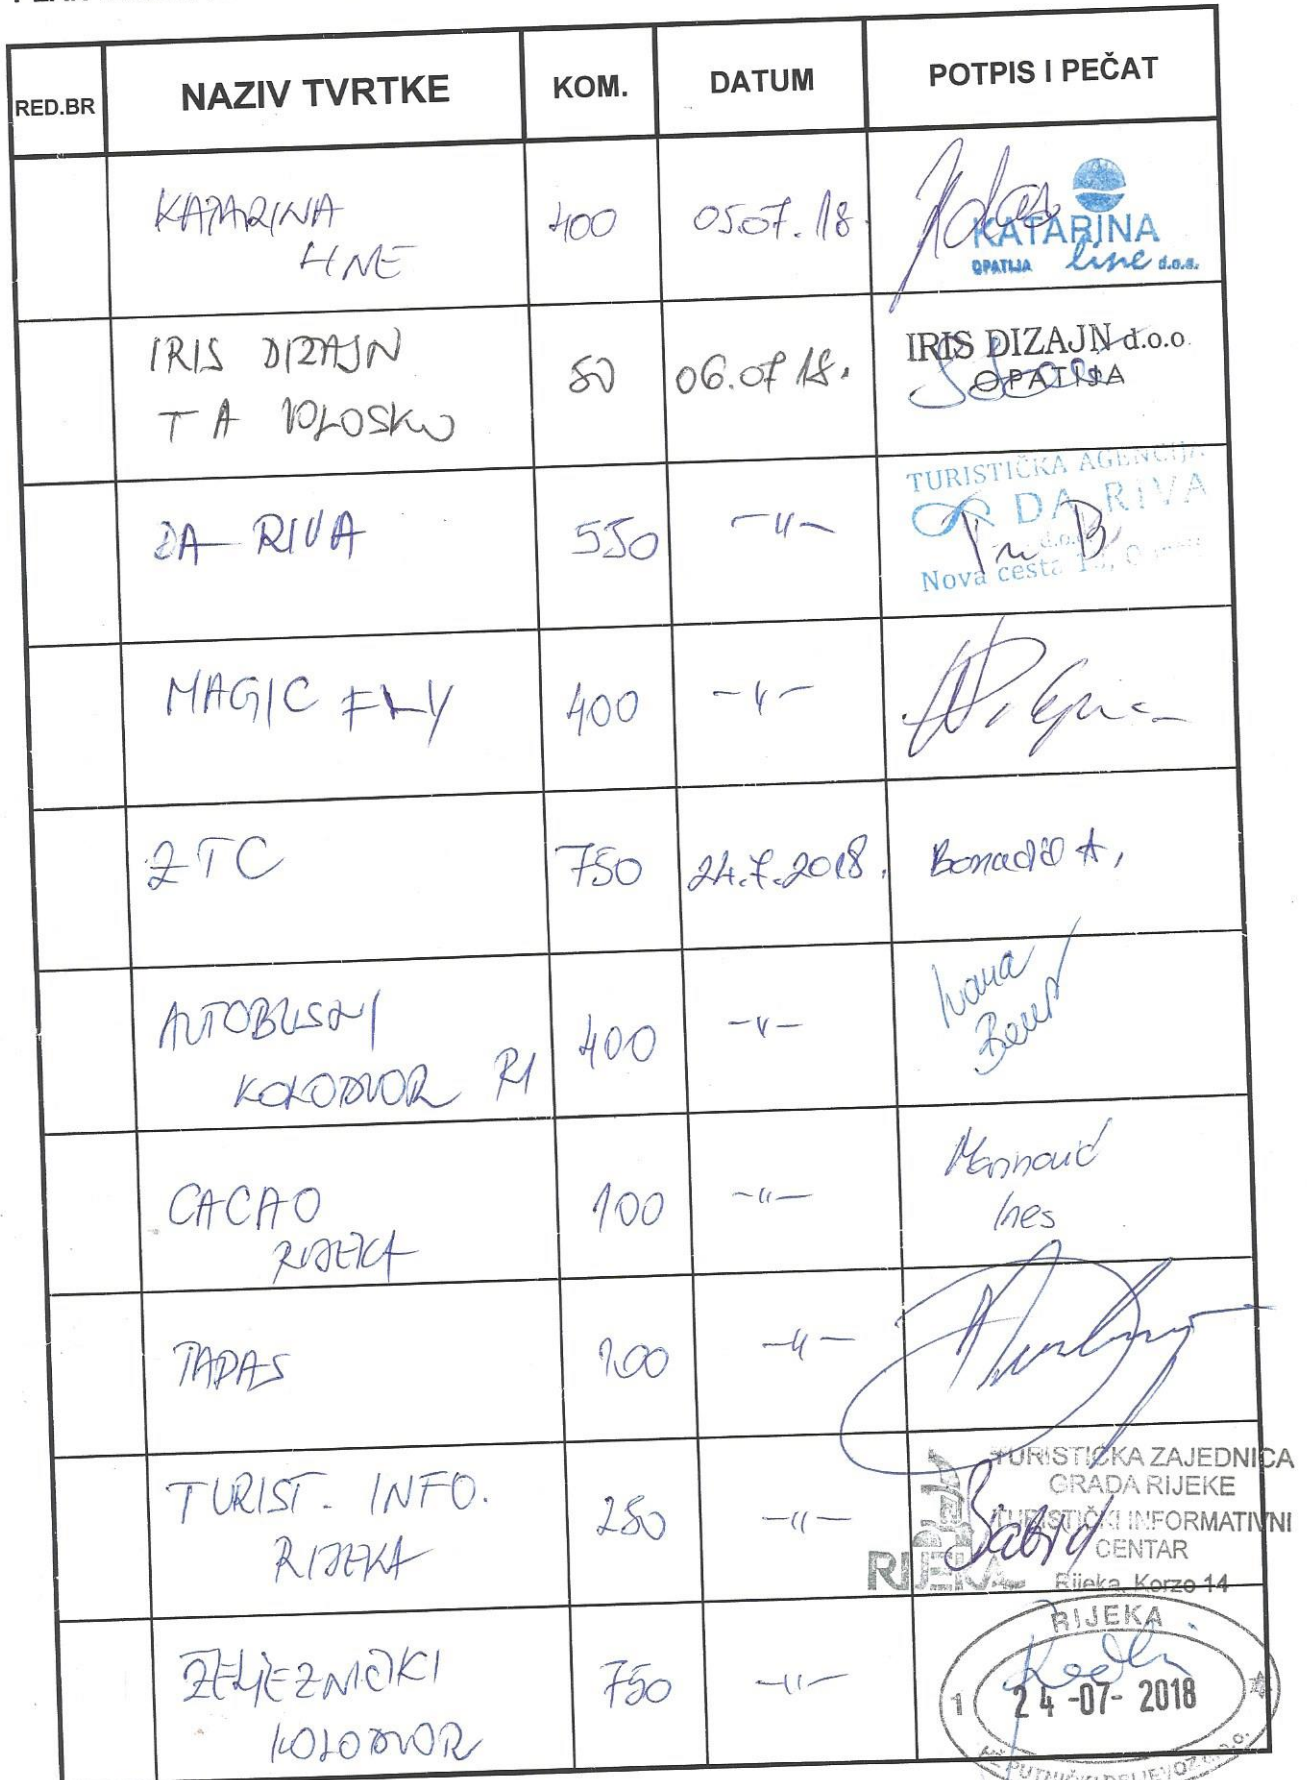 RED.BR NAZIV TVRTKE KOM. DATUM POTPIS I PEČAT
KATARINA
LINE
400 05.07.18.
KATARINA
OPATIJA line d.o.o.
IRIS DIZAJN
T A VOLOSKO
50 06.07.18.
IRIS DIZAJN d.o.o.
OPATIJA
DA RIVA 550 -"-
TURISTIČKA AGENCIJA
DA RIVA
d.o.o.
Nova cesta
MAGIC FLY 400 -"-
ZTC 750 24.7.2018. Bonadio A.
AUTOBUSNI
KOLODVOR RI
400 -"-
Ivana
CACAO
RIJEKA
100 -"-
Ines
TAPAS 100 -"-
TURIST. INFO.
RIJEKA
250 -"-
TURISTIČKA ZAJEDNICA
GRADA RIJEKE
TURISTIČKI INFORMATIVNI
CENTAR
RIJEKA Rijeka, Korzo 14
Babić
ŽELJEZNIČKI
KOLODVOR
750 -"-
RIJEKA
1 24-07-2018
HŽ PUTNIČKI PRIJEVOZ d.o.o.